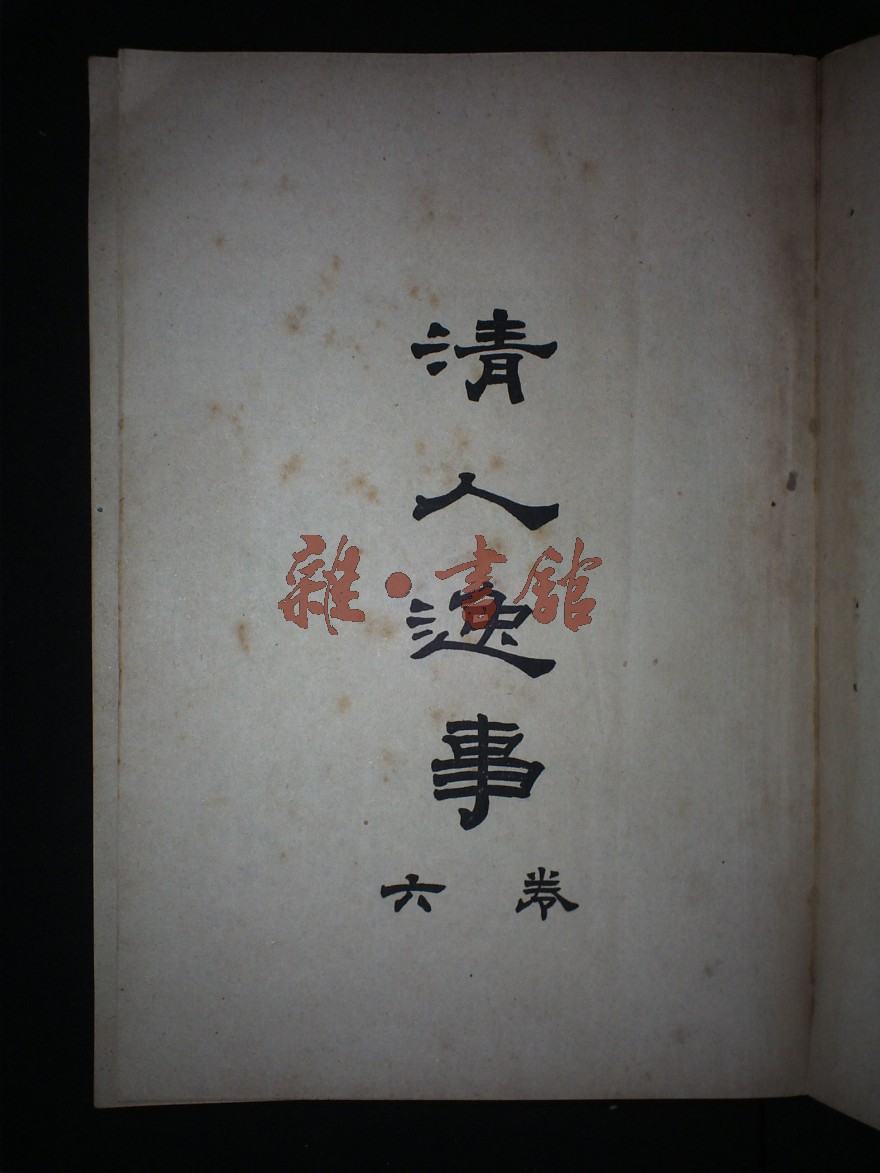 清人逸事
卷六
雜·書館